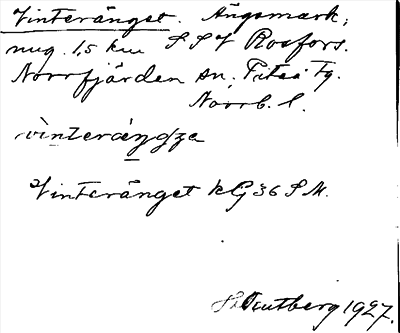 Vinteränget. Ängsmark,
nug. 1,5 km SSV Rosfors.
Norrfjärden sn, Piteå tg.
Norrb. l.
vinteräŋgɜ
Vinteränget kG 36 S M.
Stentberg 1927.